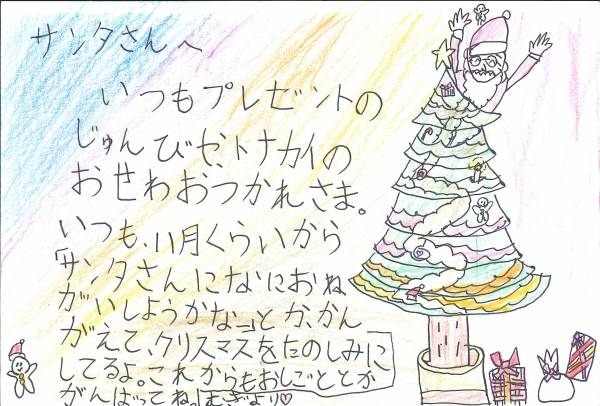 サンタさんへ
いつもプレゼントの
じゅんびゼ、トナカイの
おせわおつかれさま。
いつも、11月くらいから
「サンタさんになにおね
がいしようかな」とか、かん
がえて、クリスマスをたのしみに
してるよ。これからもおしごととか
がんばってね。むぎより♡